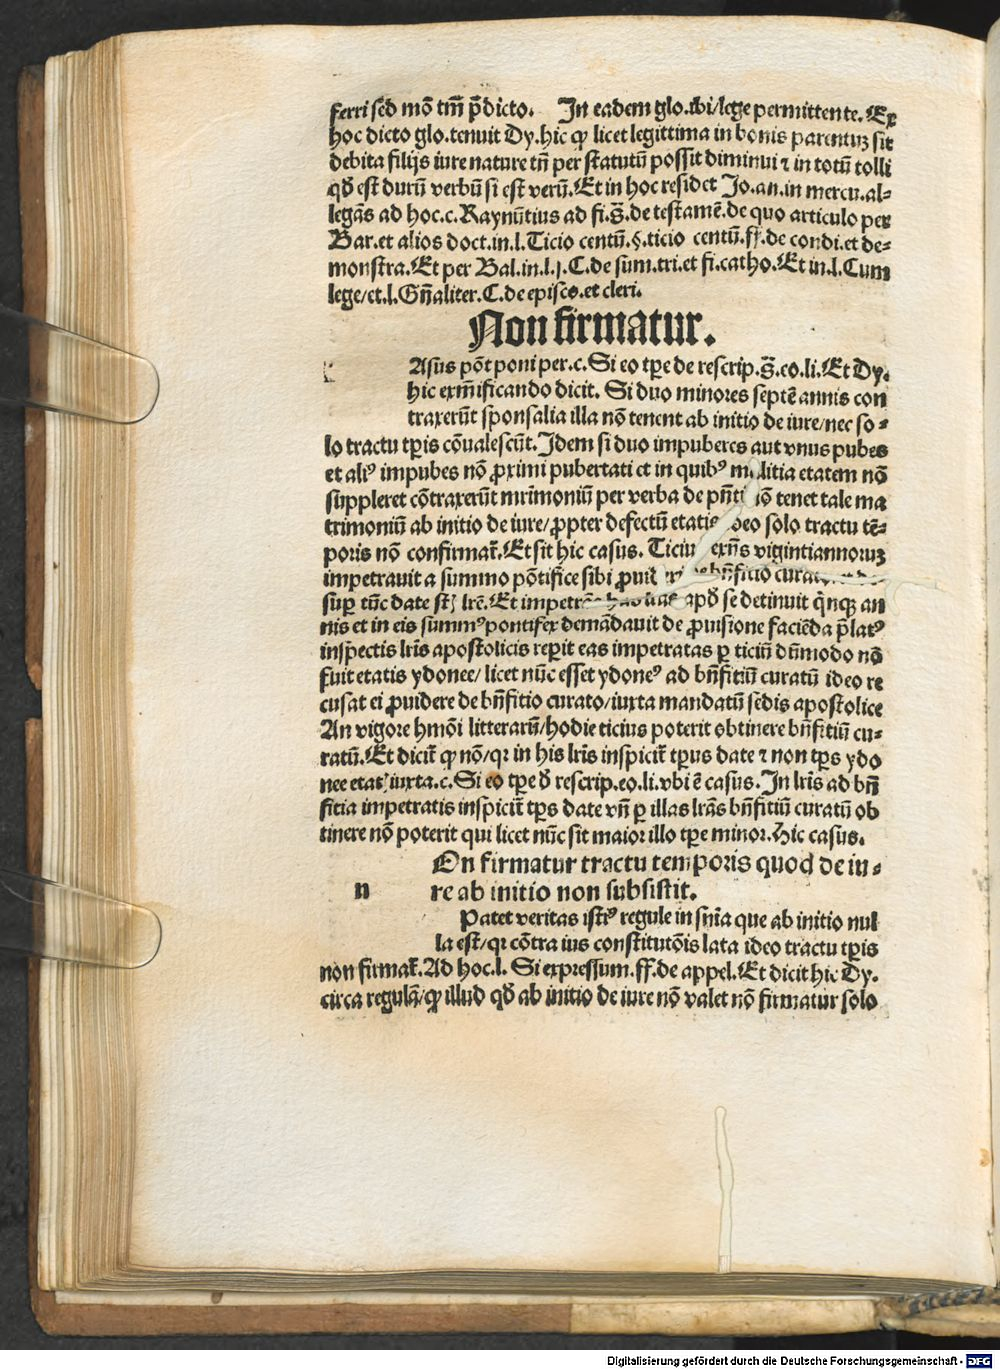 ferri sed mō tm̄ p̄dicto. In eadem glo. ibi/lege permittente. Ex
hoc dicto glo. tenuit Dy. hic ꝙ licet legittima in bonis parentuꝫ sit
debita filijs iure nature tn̄ per statutū possit diminui ⁊ in totū tolli
qđ est durū verbū si est verū. Et in hoc residet Jo. an. in mercu. al-
legās ad hoc. c. Raynūtius ad fi. s̄. de testamē. de quo articulo per
Bar. et alios doct. in. l. Ticio centū. §. ticio centū. ff. de condi. et de-
monstra. Et per Bal. in. l. j. C. de sum. tri. et fi. catho. Et in. l. Cum
lege/et. l. Gn̄aliter. C. de episco. et cleri.
Non firmatur.
Asus pōt poni per. c. Si eo tp̄e de rescrip. s̄. eo. li. Et Dy.
hic exm̄ificando dicit. Si duo minores septē annis con
traxerūt sponsalia illa nō tenent ab initio de iure/nec so-
lo tractu tp̄is cōualescūt. Idem si duo impuberes aut vnus pubes
et aliꝰ impubes nō ꝓximi pubertati et in quibꝰ malitia etatem nō
suppleret cōtraxerūt mr̄imoniū per verba de pn̄ti nō tenet tale ma
trimoniū ab initio de iure/ꝓpter defectū etatis ideo solo tractu tē-
poris nō confirmat̄. Et sit hic casus. Ticius exn̄s vigintiannoruꝫ
impetrauit a summo pōtifice sibi ꝓuideri de bn̄fitio
suꝑ tūc date lr̄e. Et apđ se detinuit q̄nqꝫ an
nis et in eis summꝰ pontifex demādauit de ꝓuisione faciēda p̄latꝰ
inspectis lr̄is apostolicis reꝑit eas impetratas ꝑ ticiū dn̄modo nō
fuit etatis ydonee/licet nūc esset ydoneꝰ ad bn̄fitiū curatū ideo re
cusat ei ꝓuidere de bn̄fitio curato/iuxta mandatū sedis apostolice
An vigore hmōi litterarū/hodie ticius poterit obtinere bn̄fitiū cu-
ratū. Et dicit̄ ꝙ nō/qꝛ in his lr̄is inspicit̄ tp̄us date ⁊ non tp̄s ydo
nee etatꝭ iuxta. c. Si eo tp̄e đ rescrip. eo. li. vbi ē casus. In lr̄is ad bn̄
fitia impetratis inspicit̄ tp̄s date vn̄ ꝑ illas lr̄as bn̄fitiū curatū ob
tinere nō poterit qui licet nūc sit maior illo tp̄e minor. Hic casus.
On firmatur tractu temporis quod de iu-
n re ab initio non subsistit.
Patet veritas istiꝰ regule in sn̄ia que ab initio nul
la est/qꝛ cōtra ius constitutōis lata ideo tractu tp̄is
non firmat̄. Ad hoc. l. Si expressum. ff. de appel. Et dicit hic Dy.
circa regulā/ꝙ illud qđ ab initio de iure nō valet nō firmatur solo
Digitalisierung gefördert durch die Deutsche Forschungsgemeinschaft - DFG